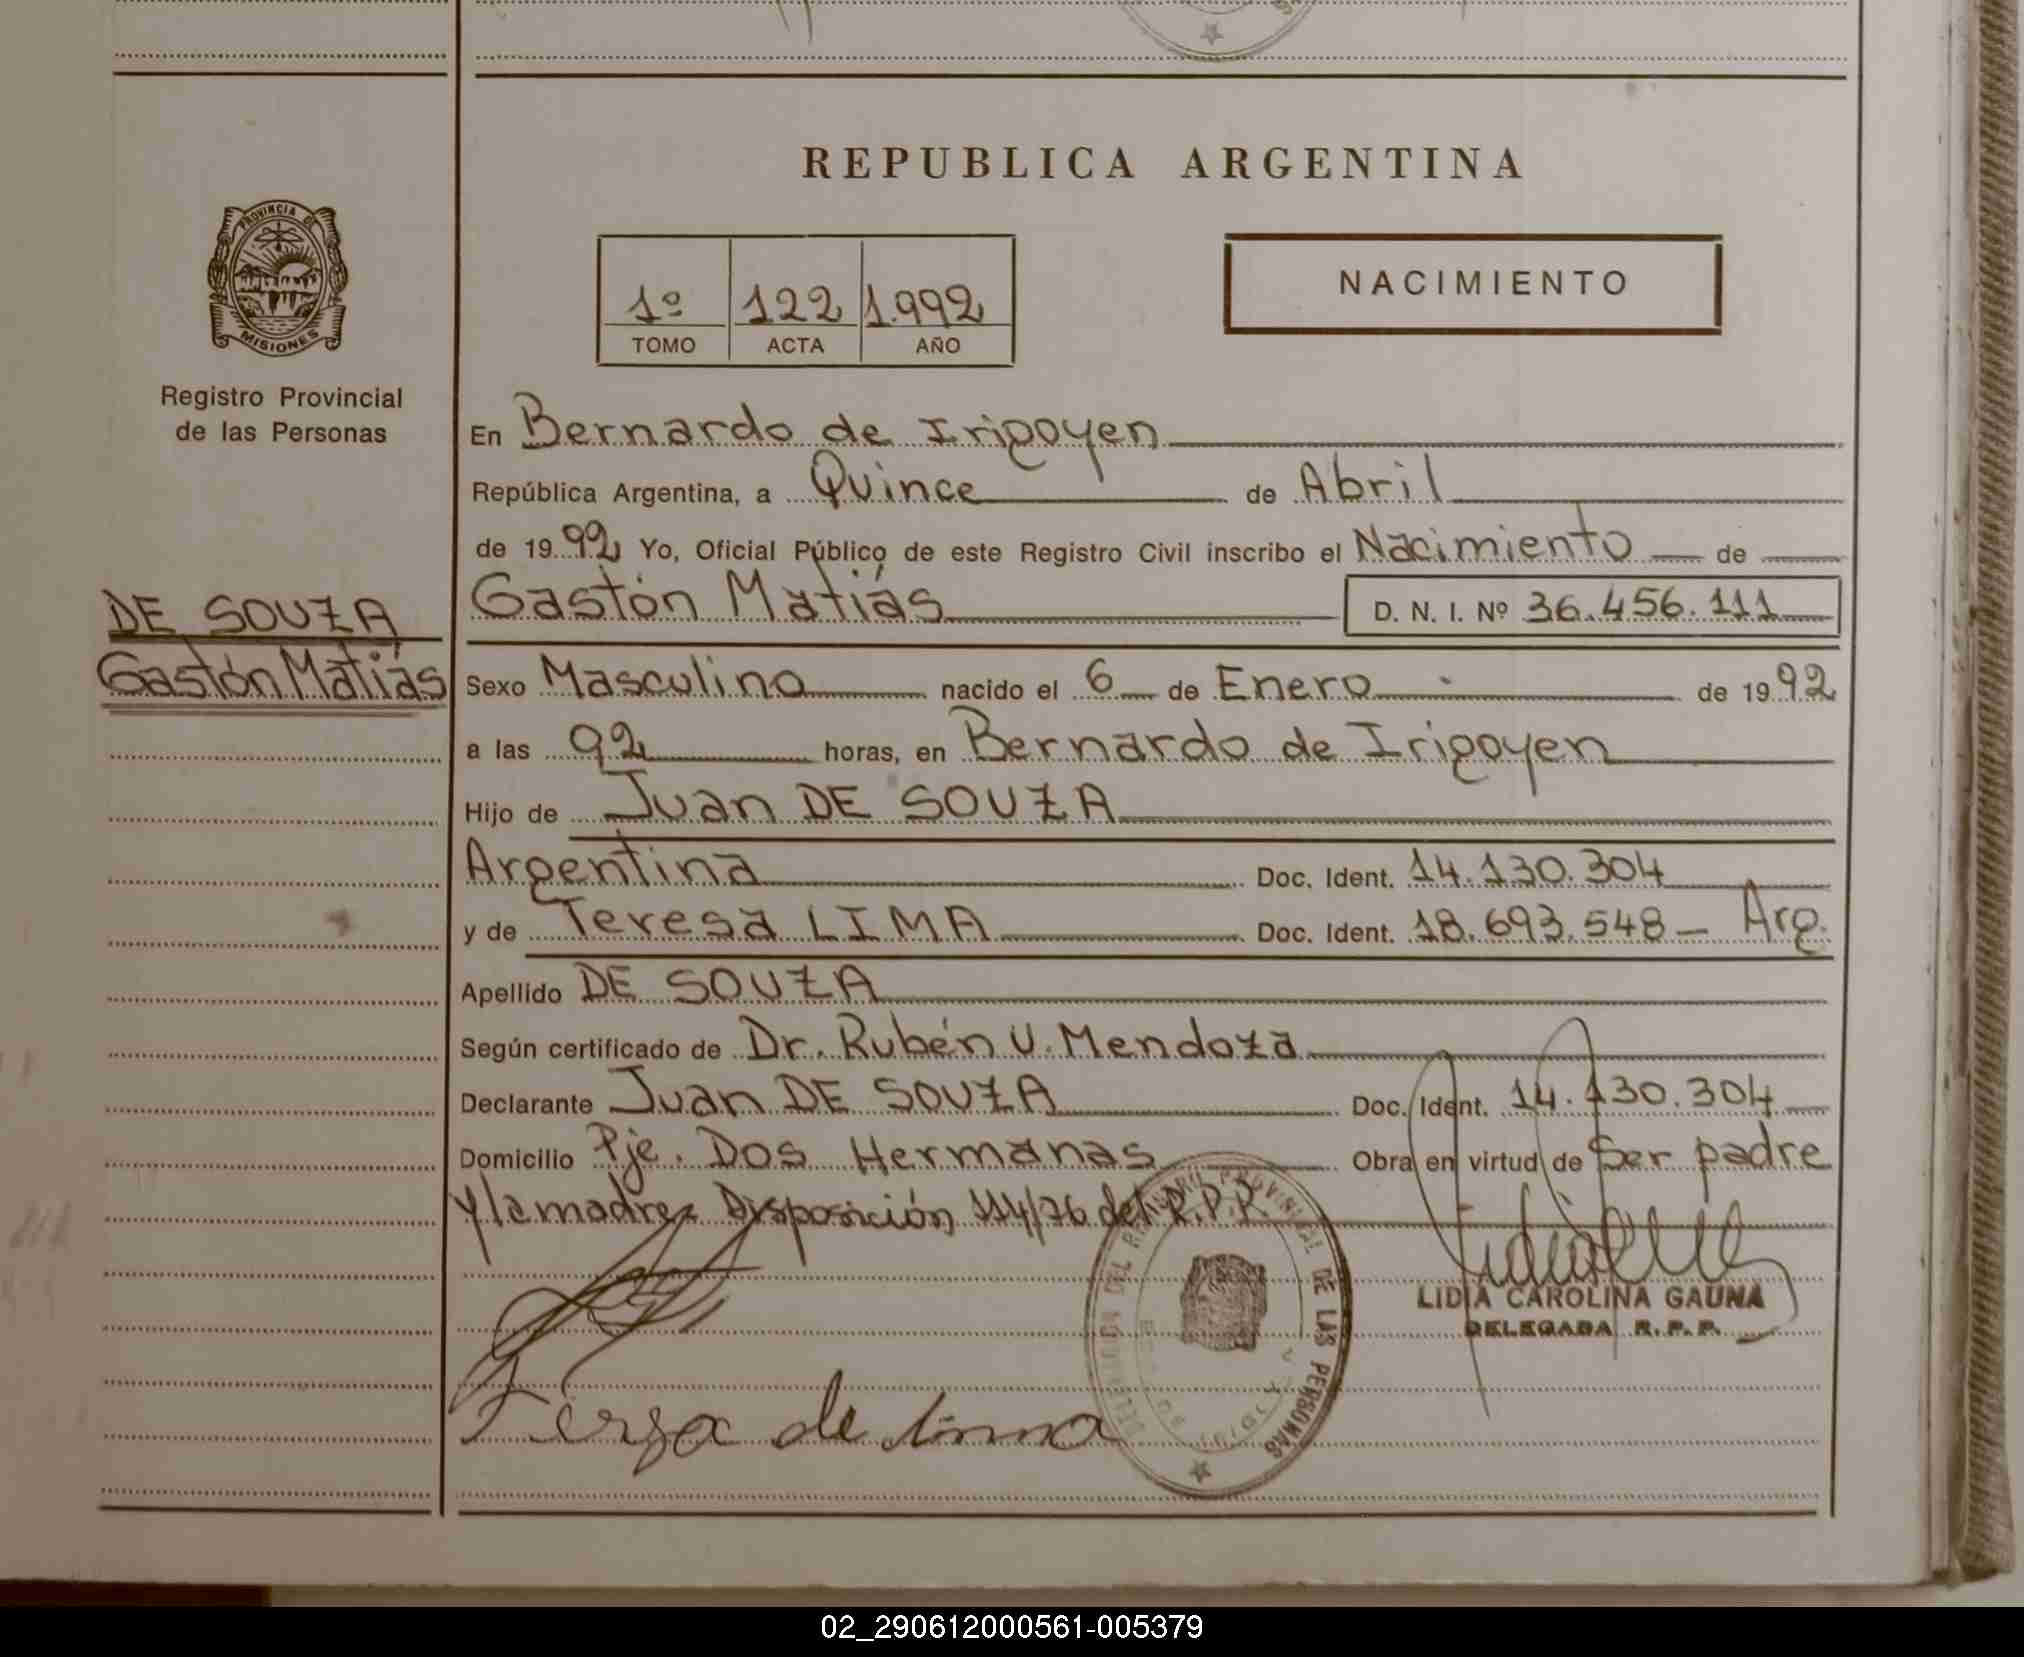 REPUBLICA ARGENTINA
PROVINCIA DE
MISIONES
Registro Provincial
de las Personas
1º 122 1.992
TOMO ACTA AÑO
NACIMIENTO
En Bernardo de Irigoyen
República Argentina, a Quince de Abril
de 1992 Yo, Oficial Público de este Registro Civil inscribo el Nacimiento de
DE SOUZA
Gastón Matiás
Gastón Matiás D. N. I. Nº 36.456.111
Sexo Masculino nacido el 6 de Enero de 1992
a las 92 horas, en Bernardo de Irigoyen
Hijo de Juan DE SOUZA
Argentina Doc. Ident. 14.130.304
y de Teresa LIMA Doc. Ident. 18.693.548 - Arg.
Apellido DE SOUZA
Según certificado de Dr. Rubén U. Mendoza
Declarante Juan DE SOUZA Doc. Ident. 14.130.304
Domicilio Pje. Dos Hermanas Obra en virtud de Ser padre
y la madre Disposición 114/76 del R.P.P.
PROVINCIAL DE LAS PERSONAS
LIDIA CAROLINA GAUNA
DELEGADA R.P.P.
de
02_290612000561-005379